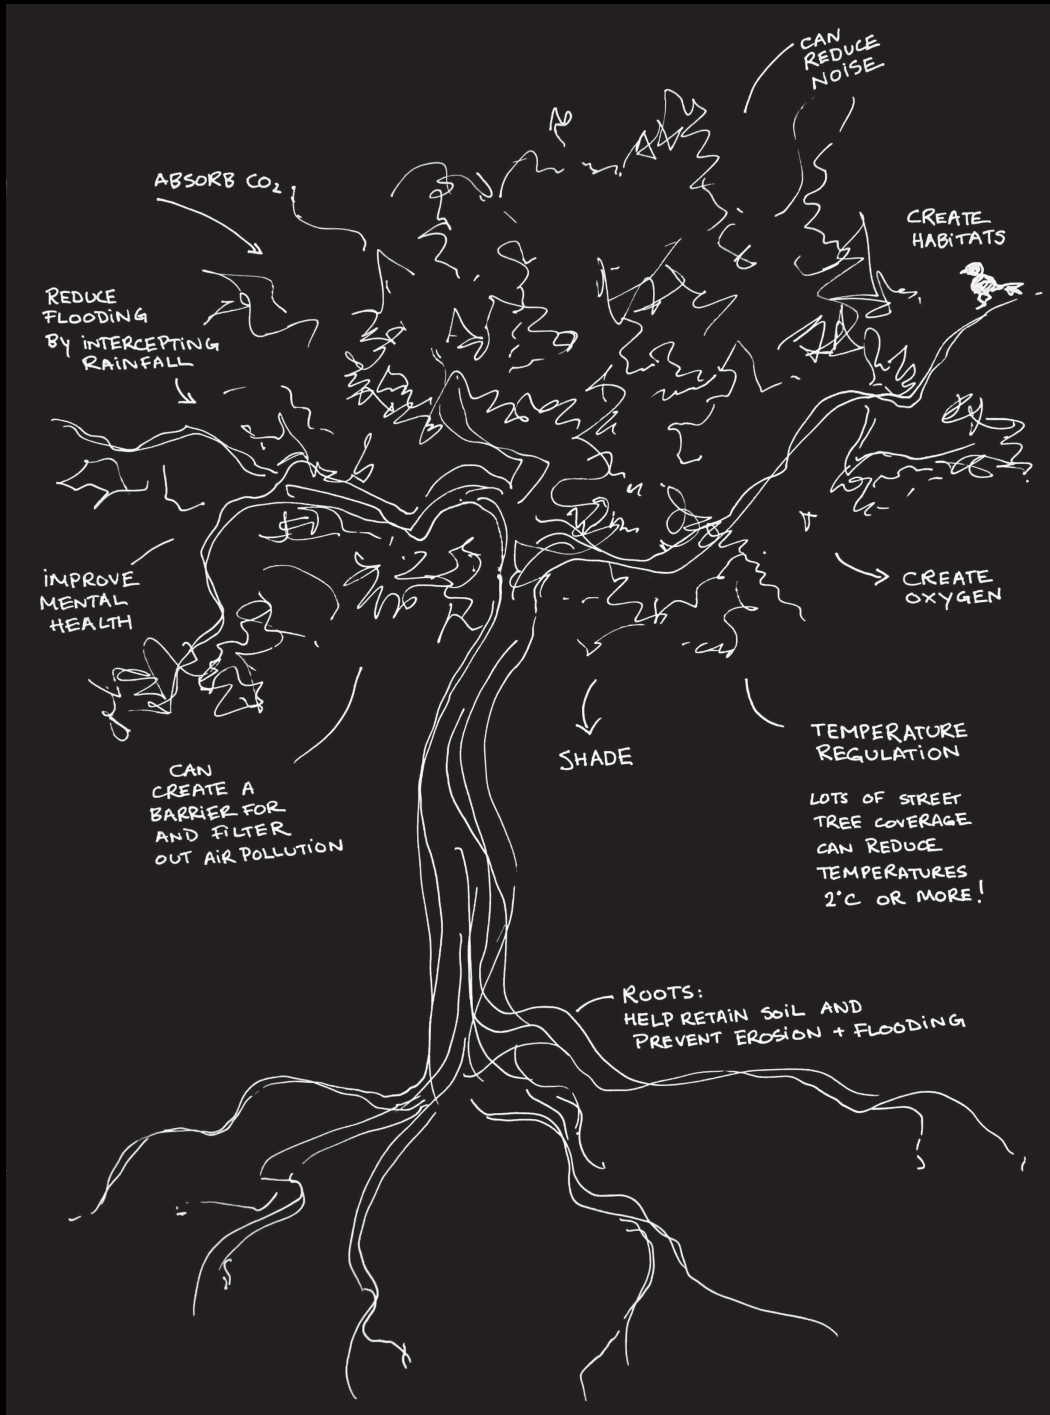 CAN
REDUCE
NOISE
ABSORB CO₂
CREATE
HABITATS
REDUCE
FLOODING
BY INTERCEPTING
RAINFALL
IMPROVE
MENTAL
HEALTH
CREATE
OXYGEN
CAN
CREATE A
BARRIER FOR
AND FILTER
OUT AIR POLLUTION
SHADE
TEMPERATURE
REGULATION
LOTS OF STREET
TREE COVERAGE
CAN REDUCE
TEMPERATURES
2°C OR MORE!
ROOTS:
HELP RETAIN SOIL AND
PREVENT EROSION + FLOODING